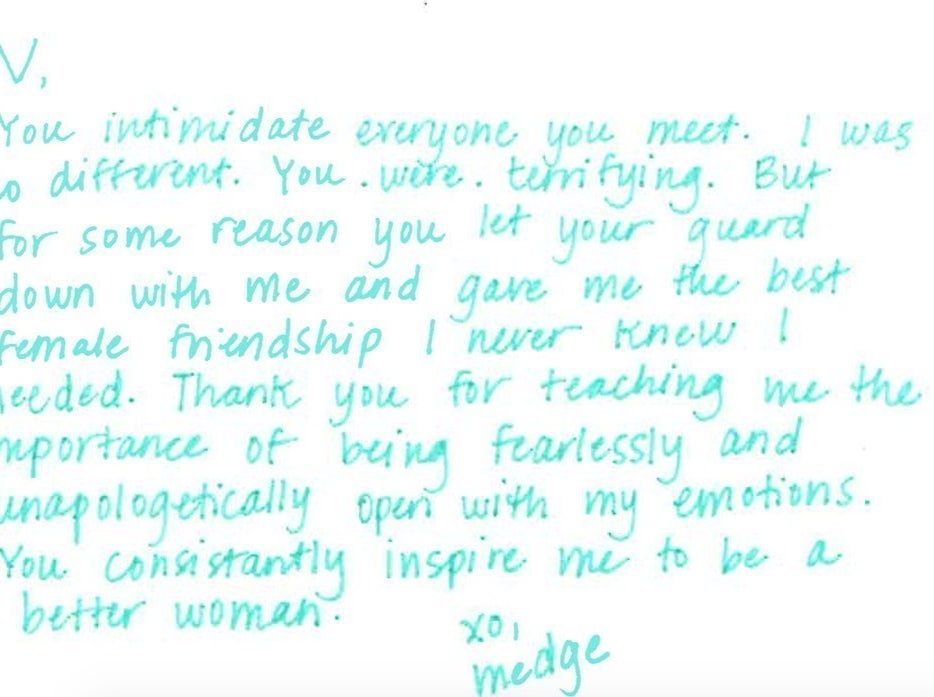 V,
You intimidate everyone you meet. I was
o different. You . were . terrifying. But
for some reason you let your guard
down with me and gave me the best
female friendship I never knew I
eeded. Thank you for teaching me the
mportance of being fearlessly and
unapologetically open with my emotions.
You consistantly inspire me to be a
better woman.
xo,
medge